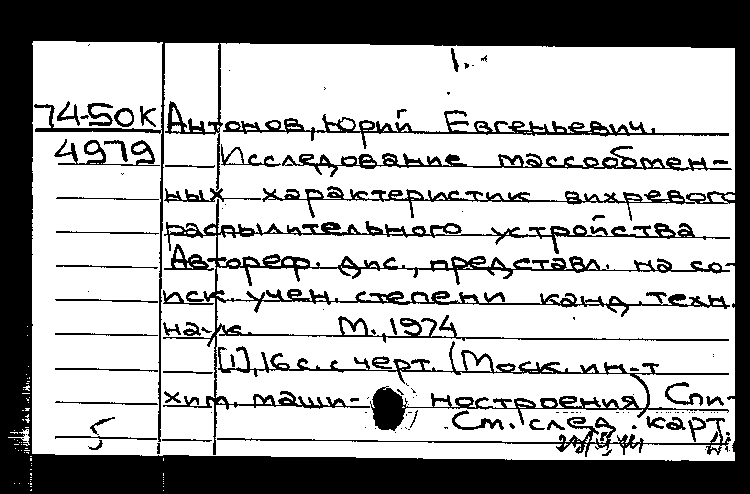 1.
74-50к Антонов, Юрий Евгеньевич.
4979 Исследование массообмен-
ных характеристик вихревого
распылительного устройства.
Автореф. дис., представл. на со-
иск. учен. степени канд. техн.
наук. М., 1974.
[1], 16 с. с черт. (Моск. ин-т
хим. маши- ностроения) Спи-
5 См. след. карт